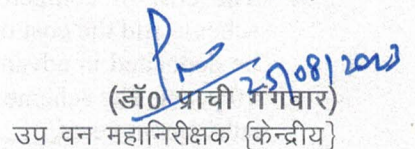 25/08/2023
(डॉ0 प्राची गंगवार)
उप वन महानिरीक्षक {केन्द्रीय}